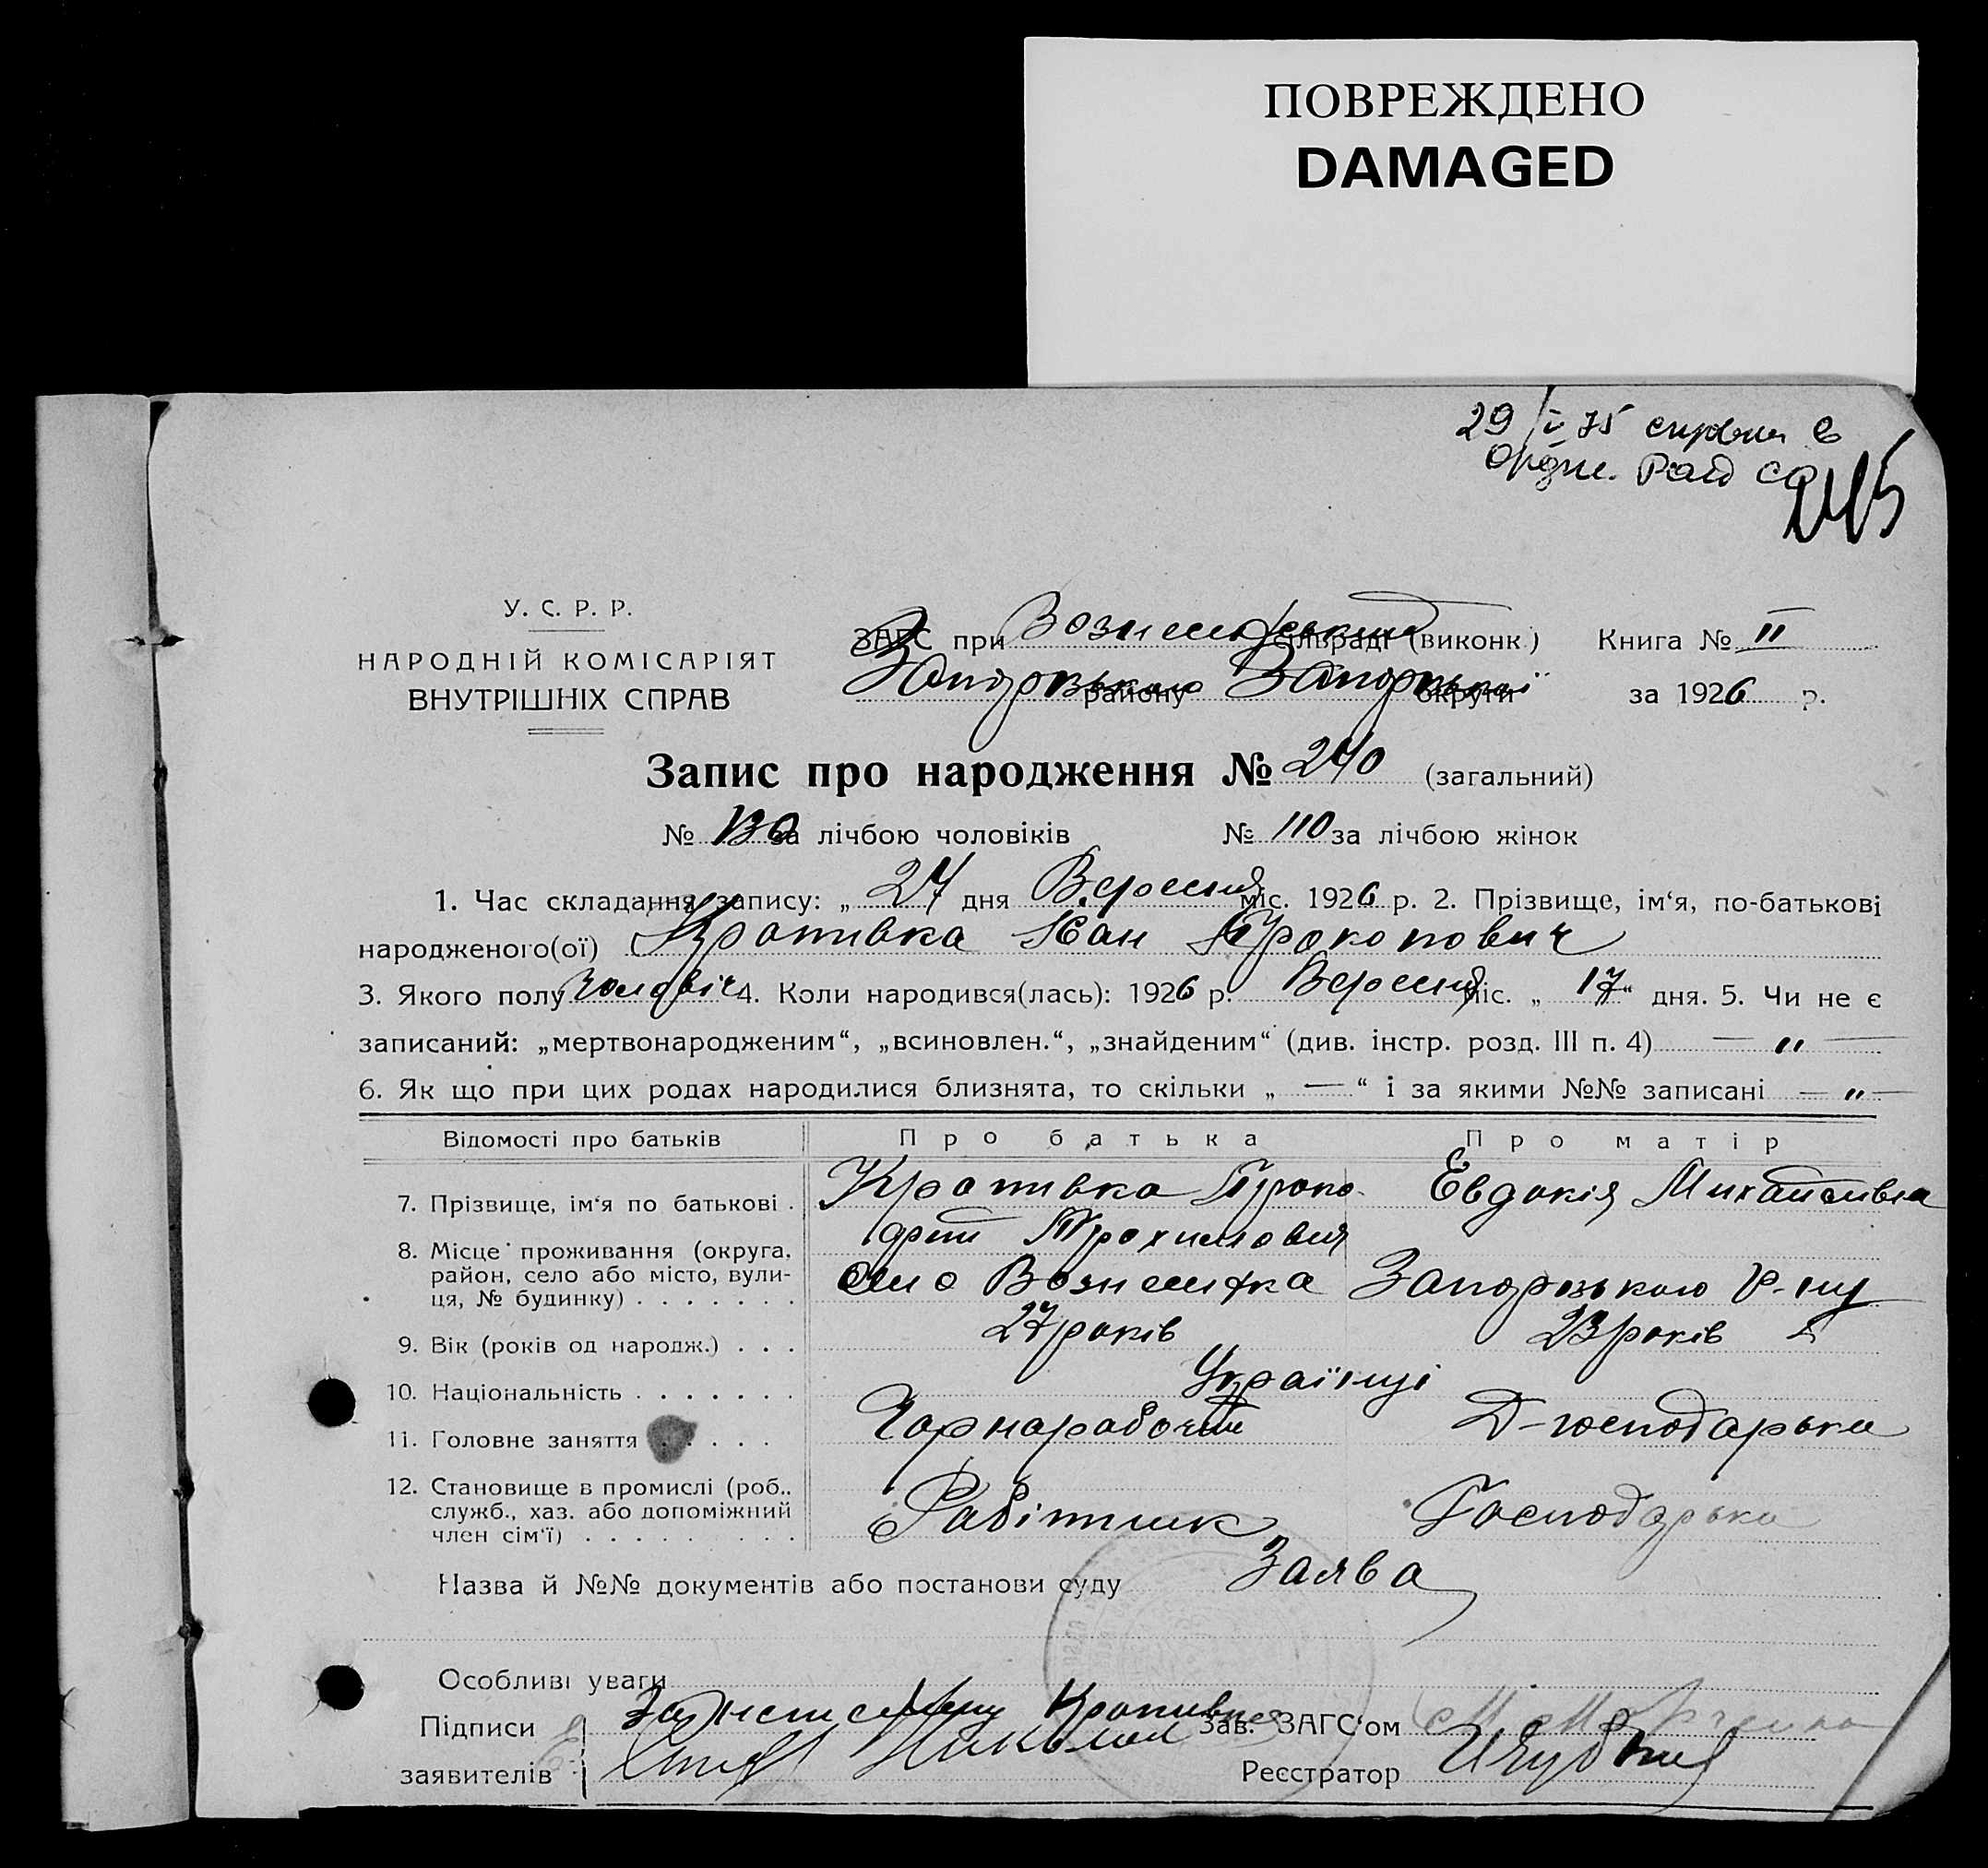 ПОВРЕЖДЕНО
DAMAGED
29/V 75 справка в
Орджн. Рай
245
У. С. Р. Р.
НАРОДНІЙ КОМІСАРІЯТ
ВНУТРІШНІХ СПРАВ
ЗАГС при Вознесенській сільраді (виконк.) Книга № II
Запорізького району Запорізької округи за 1926 р.
Запис про народження № 240 (загальний)
№ 130 за лічбою чоловіків № 110 за лічбою жінок
1. Час складання запису: „ 24 дня Вересня міс. 1926 р. 2. Прізвище, ім‘я, по-батькові
народженого(ої) Кропивка Іван Прокопович
3. Якого полу чоловіч 4. Коли народився(лась): 1926 р. Вересня міс. „ 17 “ дня. 5. Чи не є
записаний: „мертвонародженим“, „всиновлен.“, „знайденим“ (див. інстр. розд. III п. 4) — „ —
6. Як що при цих родах народилися близнята, то скільки „ — “ і за якими №№ записані — „ —
Відомості про батьків Про батька Про матір
7. Прізвище, ім‘я по батькові . Кропивка Євдокія Михайлівна
Трохимович
8. Місце проживання (округа, район, село або місто, вулиця, № будинку) . . . . . . . село Вознесенка Запорізького р-ну
9. Вік (років од народж.) . . . 27 років 23 років
10. Національність . . . . . . . Українці
11. Головне заняття . . . . . Чорнарабочий Д-господарька
12. Становище в промислі (роб., служб., хаз. або допоміжний член сім‘ї) . . . . . . . . . Робітник Господарька
Назва й №№ документів або постанови суду Заява
Особливі уваги
Підписи Кропивка Зав. ЗАГС‘ом
заявителів Реєстратор